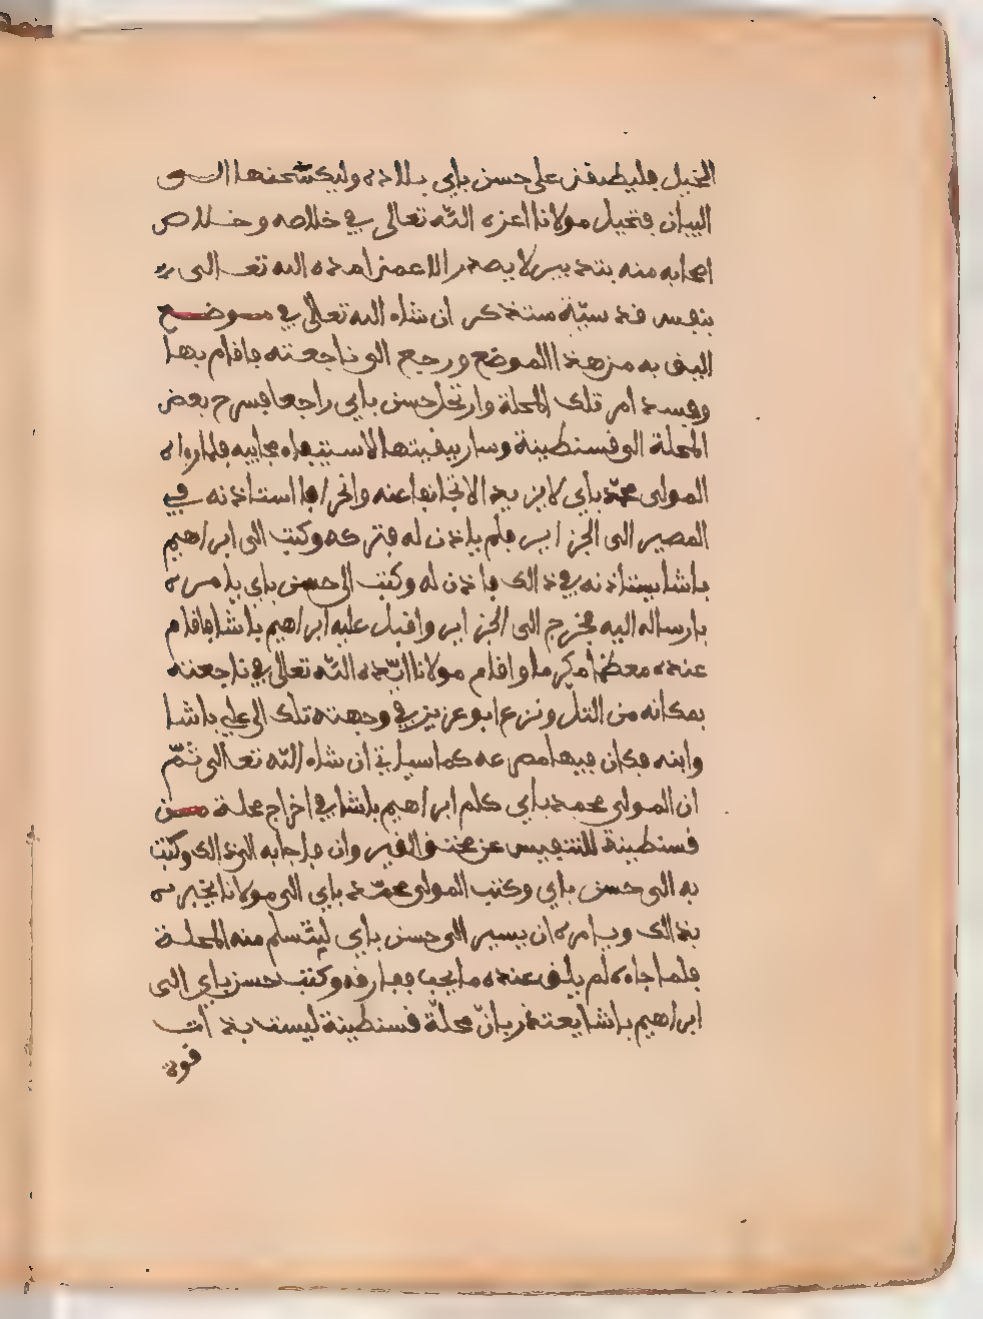 الخيل فليطبقن على حسن باي بلاده وليكتسحنها الى
البيان فتحيل مولانا اعزه الله تعالى في خلاصه وخلاص
اصحابه منه بتدبير لا يصدر الا عمن امده الله تعالى
بنفس قدسيّة ستذكر ان شاء الله تعالى في موضع
اليق به من هذا الموضع ورجع الى ناجعته فاقام بها
وفسد امر تلك المحلة وارتحل حسن باي راجعا فسرح بعض
المحلة الى قسنطينة وسار ببقيتها لاستيفاء مجابيه فلما رءاه
المولى محمد باي لا يزيد الا انحرافا عنه استاذنه في
المصير الى الجزاير فلم ياذن له فتركه وكتب الى ابراهيم
باشا يستاذنه في ذالك فاذن له وكتب الى حسن باي يامره
بارساله اليه فخرج الى الجزاير واقبل عليه ابراهيم باشا فاقام
عنده معظما مكرما واقام مولانا ايّده الله تعالى في ناجعته
بمكانه من التلّ ونزع ابو عزيز في وجهته تلك الى علي باشا
وابنه فكان فيها مصرعه كما سياتي ان شاء الله تعالى ثمّ
ان المولى محمد باي كلم ابراهيم باشا في اخراج محلة من
قسنطينة للتنفيس عن مخنق القيروان فاجابه الى ذالك وكتب
به الى حسن باي وكتب المولى محمّد باي الى مولانا يخبره
بذالك ويامره ان يسير الى حسن باي ليتسلم منه المحلة
فلما جاءه لم يلق عنده ما يحب ففارقه وكتب حسن باي الى
ابراهيم باشا يعتذر بانّ محلّة قسنطينة ليست بذات
قوة